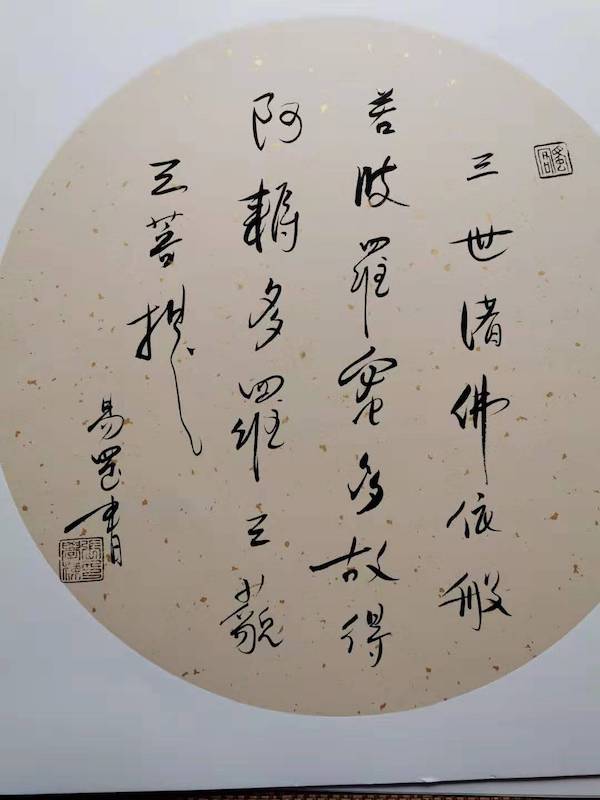 三世诸佛依般
若波羅蜜多故得
阿耨多羅三藐
三菩提
易罡書